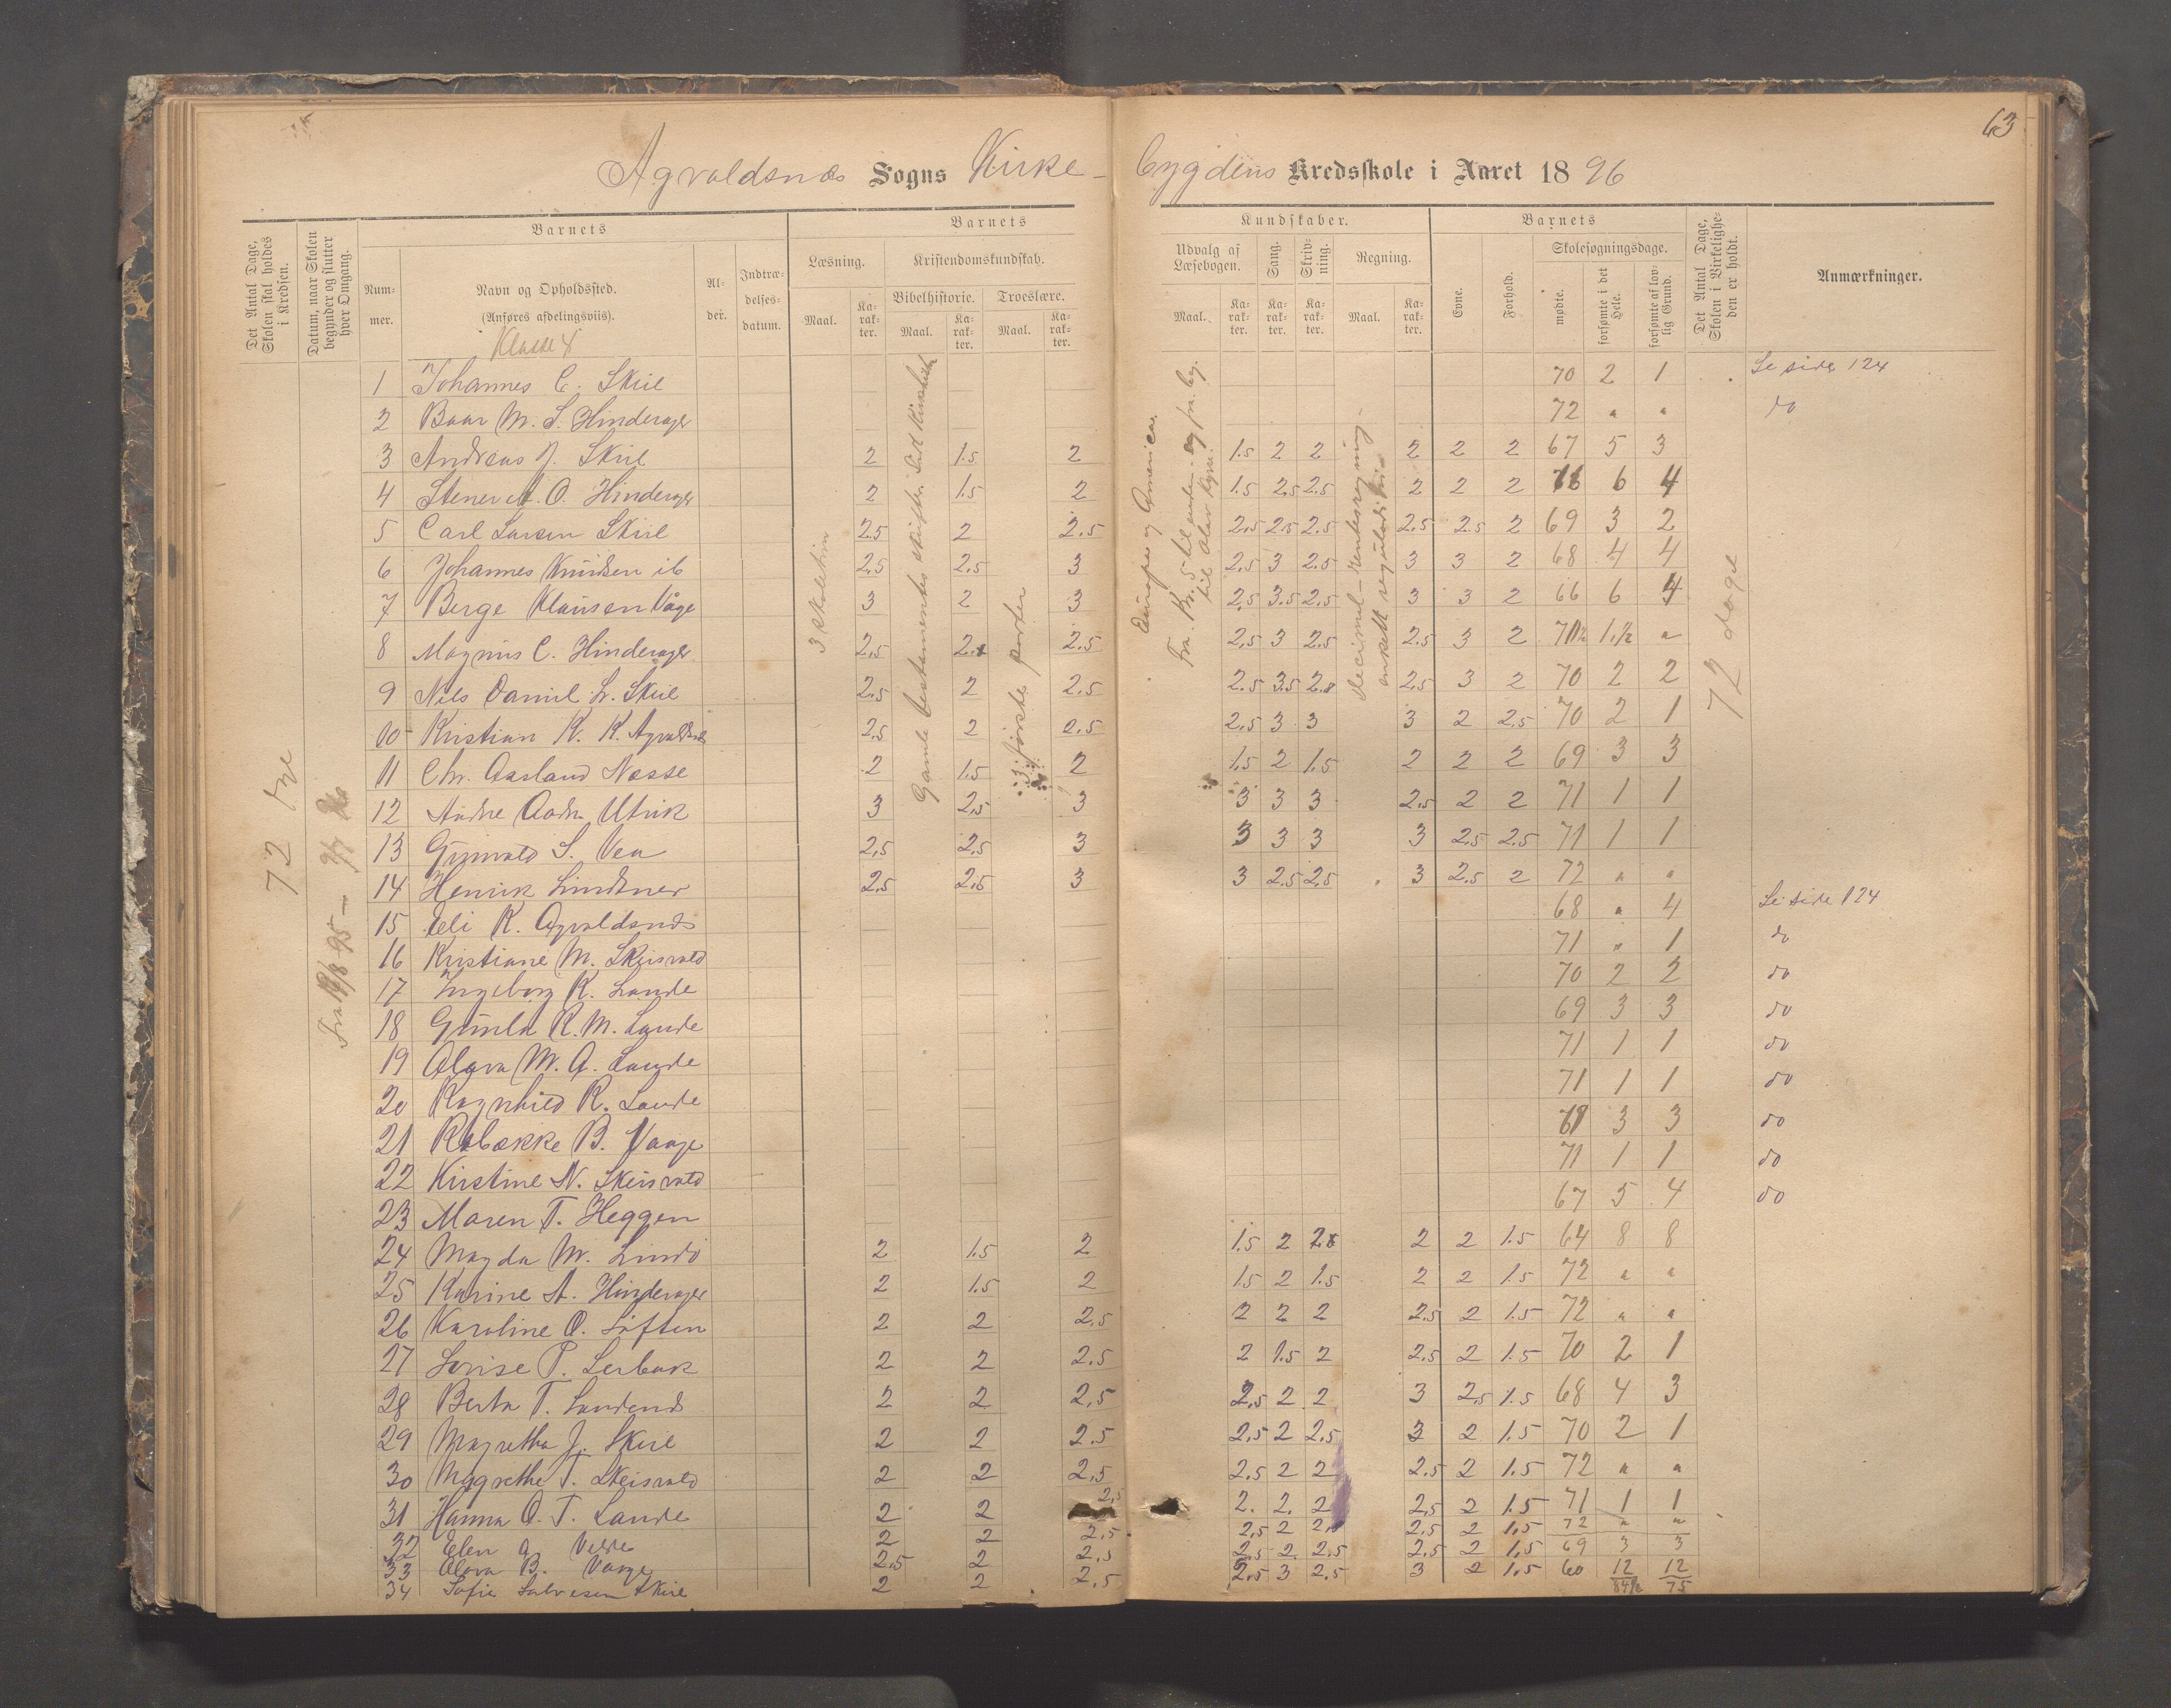 63
Agvaldsnæs Sogns Kirke-
bygdens Kredsskole i Aaret 1896
Det Antal Dage, Skolen skal holdes i Kredsen.
Datum, naar Skolen begynder og slutter hver Omgang.
Barnets
Num-mer.
Navn og Opholdssted.
(Anføres afdelingsviis).
Klasse
Al-der.
Indtræ-delses-datum.
Barnets
Læsning.
Maal.
Ka-rak-ter.
Kristendomskundskab.
Bibelhistorie.
Maal.
Ka-rak-ter.
Troeslære.
Maal.
Ka-rak-ter.
Kundskaber.
Udvalg af Læsebogen.
Maal.
Ka-rak-ter.
Sang.
Ka-rak-ter.
Skriv-ning.
Ka-rak-ter.
Regning.
Maal.
Ka-rak-ter.
Barnets
Evne.
Forhold.
Skolesøgningsdage.
mødte.
forsømte i det Hele.
forsømte af lov-lig Grund.
Det Antal Dage, Skolen i Virkelighe-den er holdt.
Anmærkninger.
72
3 skoletrin
3 første parter
Europa og Amerika.
72 dage
1 Johannes C. Skile 70 2 1 Se side 124
2 M. S. Hinderager 72 " " do
3 Andreas J. Skile 2 1.5 2 1.5 2 2 2 2 2 67 5 3
4 O. Hinderager 2 1.5 2 1.5 2.5 2.5 2 2 2 6 4
5 Carl Larsen Skile 2.5 2 2.5 2.5 2.5 2.5 2.5 2.5 2 69 3 2
6 Johannes Knudsen ib 2.5 2.5 3 2.5 3 2.5 3 3 2 68 4 4
7 Berge Klausen Våge 3 2 3 2.5 3.5 2.5 3 3 2 66 6 4
8 Magnus C. Hinderager 2.5 2.5 2.5 3 2.5 2.5 3 2 "
9 Nils Daniel L. Skile 2.5 2 2.5 2.5 3.5 2.5 3 2 70 2 2
10 Kristian K. K. Agvaldsnes 2.5 2 2.5 2.5 3 3 3 2 2.5 70 2 1
11 Chr. Aarland Nesse 2 1.5 2 1.5 2 1.5 2 2 2 69 3 3
12 Andre Utvik 3 2.5 3 3 3 3 2.5 2 2 71 1 1
13 S. Vea 2.5 2.5 3 3 3 3 3 2.5 2.5 71 1 1
14 Henrik Lindtner 2.5 2.5 3 3 2.5 2.5 3 2.5 2 72 " "
15 Eli K. Agvaldsnes 68 " 4 Se side 124
16 Kristiane M. Skeisvold 71 " 1 do
17 Ingeborg K. Lande 70 2 2 do
18 Gunla R. M. Lande 69 3 3 do
19 Olava M. A. Lande 71 1 1 do
20 Ragnhild R. Lande 71 1 1 do
21 Rebække B. Vaage 3 3 do
22 Kirstine N. Skeisvold 71 1 1 do
23 Maren T. Heggen 67 5 4 do
24 Magda M. Lindø 2 1.5 2 1.5 2 2 2 1.5 64 8 8
25 Karine A. Hinderager 2 1.5 2 1.5 2 1.5 2 2 1.5 72 " "
26 Karoline O. Loften 2 2 2.5 2 2 2 2.5 2 1.5 72 " "
27 Lovise P. Lerbak 2 2 2.5 2 1.5 2 2.5 2 1.5 70 2 1
28 Berta T. Sandend 2 2 2.5 2.5 2 2 3 2.5 1.5 68 4 3
29 Magretha J. Skile 2 2 2.5 2.5 2 2.5 3 2 1.5 70 2 1
30 Magrethe T. Skeisvold 2 2 2.5 2.5 2 2 2.5 2 1.5 72 " "
31 Hanna O. T. Lande 2 2 2.5 2. 2. 2 2.5 2 1.5 71 1 1
32 Elen A. Velde 2 2 2.5 2.5 2 2.5 2 1.5 72 " "
33 Olava B. Vaage 2.5 2 2.5 2.5 2 2.5 2.5 2 1.5 69 3 3
34 Sofie Salvesen Skile 2 2 2.5 2.5 3 2.5 3 2 1.5 60 12 12
84½ 75